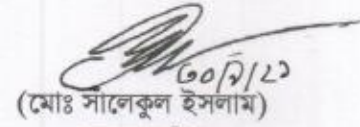 ৩০/৯/২১
(মোঃ সালেকুল ইসলাম)